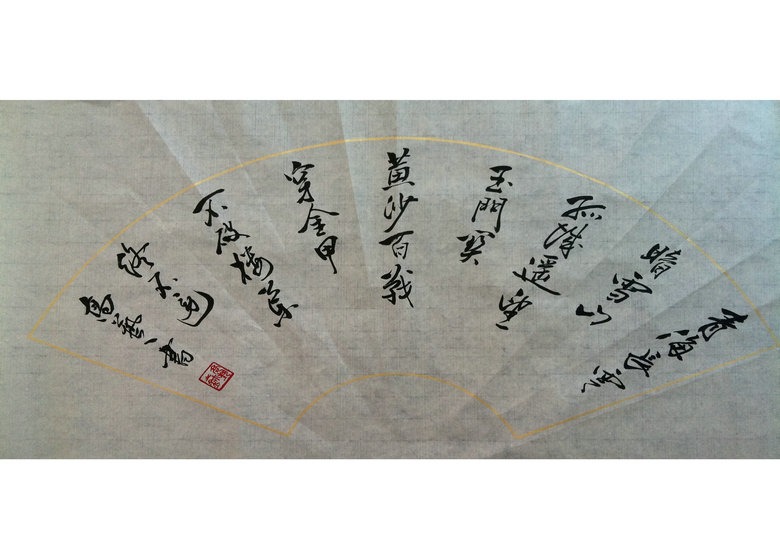 青海長雲
暗雪山
孤城遥望
玉門関
黄沙百戰
穿金甲
不破樓蘭
終不還
書